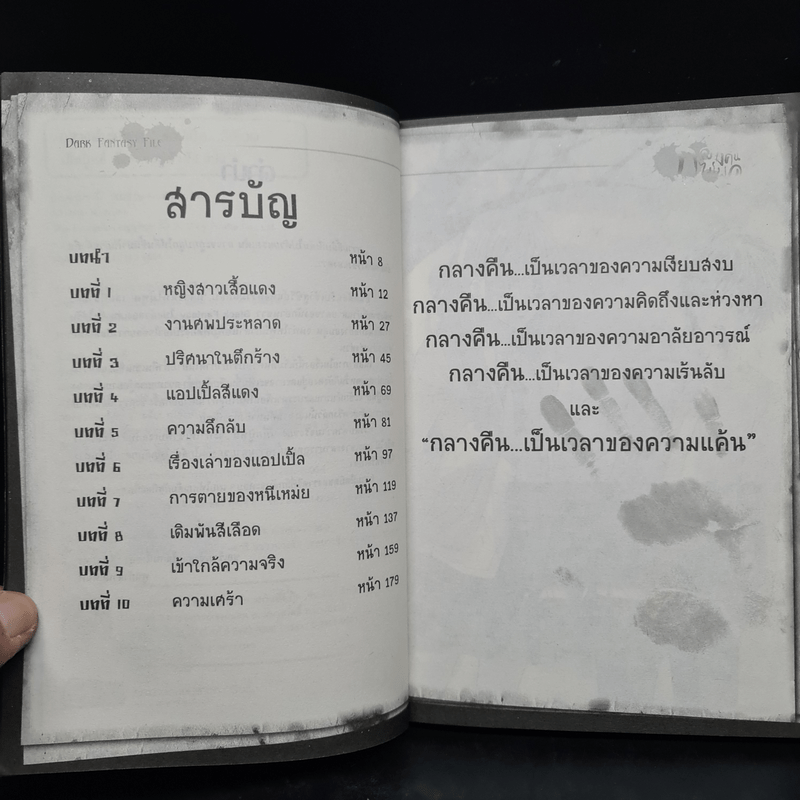 DARK FANTASY TILE
สารบัญ
บทนำ หน้า 8
บทที่ 1 หญิงสาวเสื้อแดง หน้า 12
บทที่ 2 งานศพประหลาด หน้า 27
บทที่ 3 ปริศนาในตึกร้าง หน้า 45
บทที่ 4 แอปเปิ้ลสีแดง หน้า 69
บทที่ 5 ความลึกลับ หน้า 81
บทที่ 6 เรื่องเล่าของแอปเปิ้ล หน้า 97
บทที่ 7 การตายของหนีเหม่ย หน้า 119
บทที่ 8 เดิมพันสีเลือด หน้า 137
บทที่ 9 เข้าใกล้ความจริง หน้า 159
บทที่ 10 ความเศร้า หน้า 179
กลางคืน...เป็นเวลาของความเงียบสงบ
กลางคืน...เป็นเวลาของความคิดถึงและห่วงหา
กลางคืน...เป็นเวลาของความอาลัยอาวรณ์
กลางคืน...เป็นเวลาของความเร้นลับ
และ
“กลางคืน...เป็นเวลาของความแค้น”